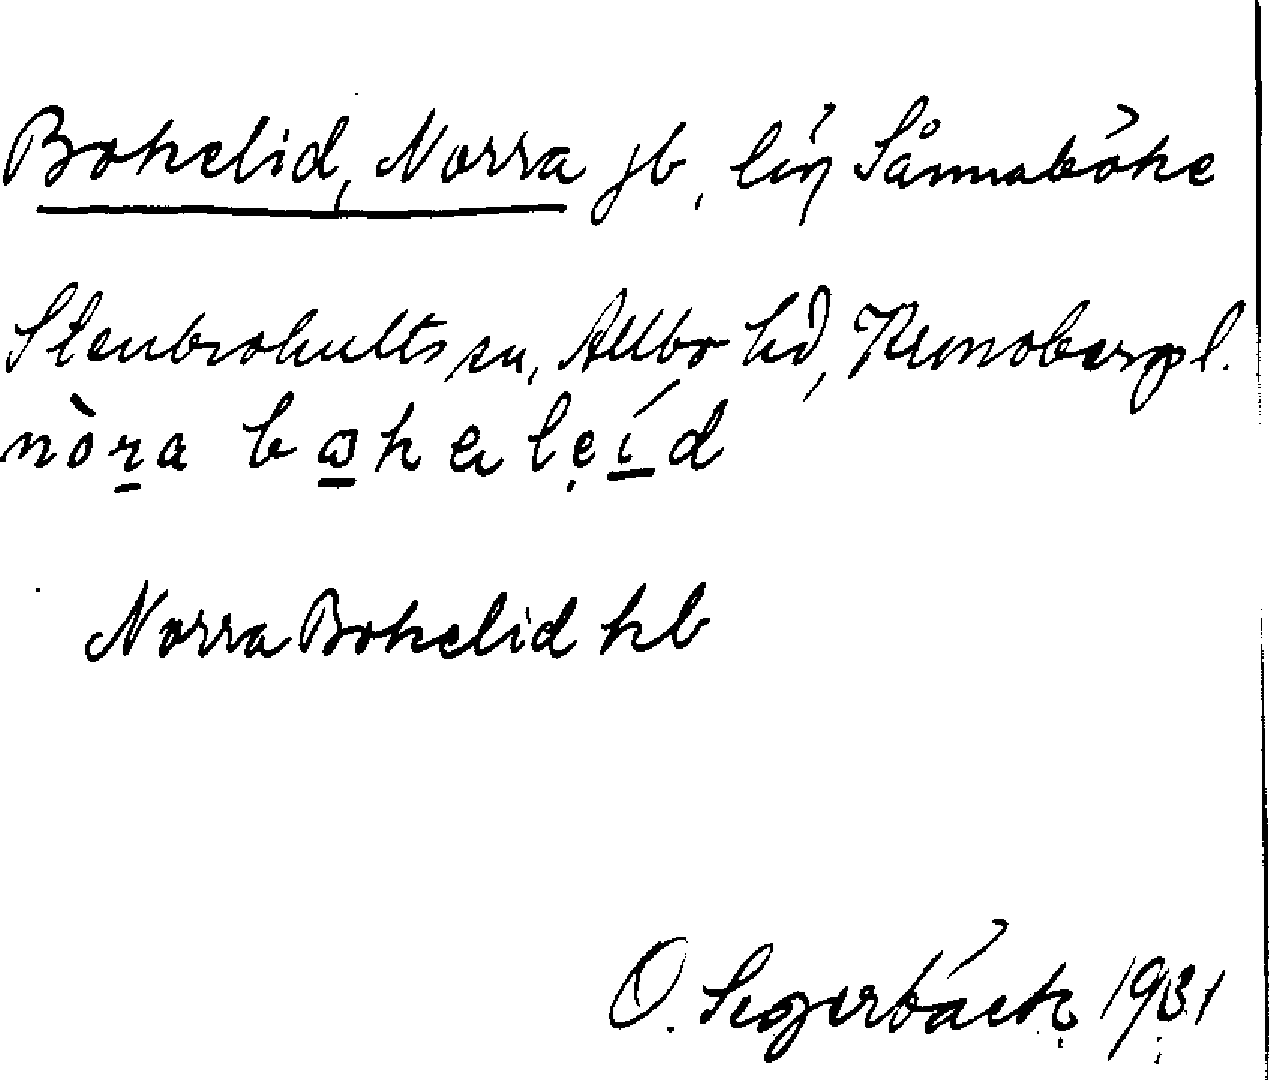 Bokelid, Norra jb, lih Sånnaböke
Stenbrohults sn, Allbo hd, Kronobergs l.
nòra bakerleíd
Norra Bokelid hb
O. Segerbäck 1931